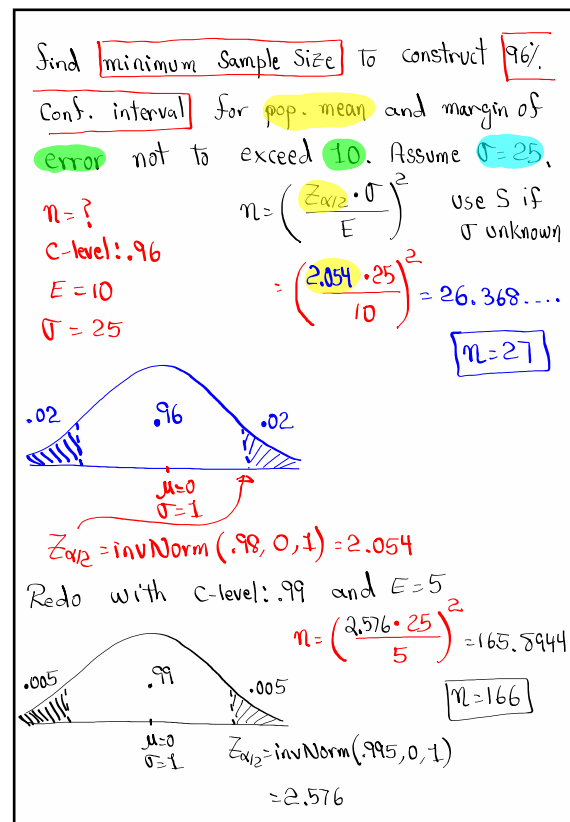 find minimum Sample Size To construct 96%
Conf. interval for pop. mean and margin of
error not to exceed 10. Assume σ=25.
n=?
C-level: .96
E=10
σ=25
n=(Zα/2 · σ / E)²
use S if
σ unknown
=(2.054 · 25 / 10)² = 26.368....
n=27
.02 .96 .02
μ=0
σ=1
Zα/2 = invNorm(.98, 0, 1) = 2.054
Redo with C-level: .99 and E=5
n=(2.576 · 25 / 5)² = 165.8944
n=166
.005 .99 .005
μ=0
σ=1
Zα/2 = invNorm(.995, 0, 1)
=2.576